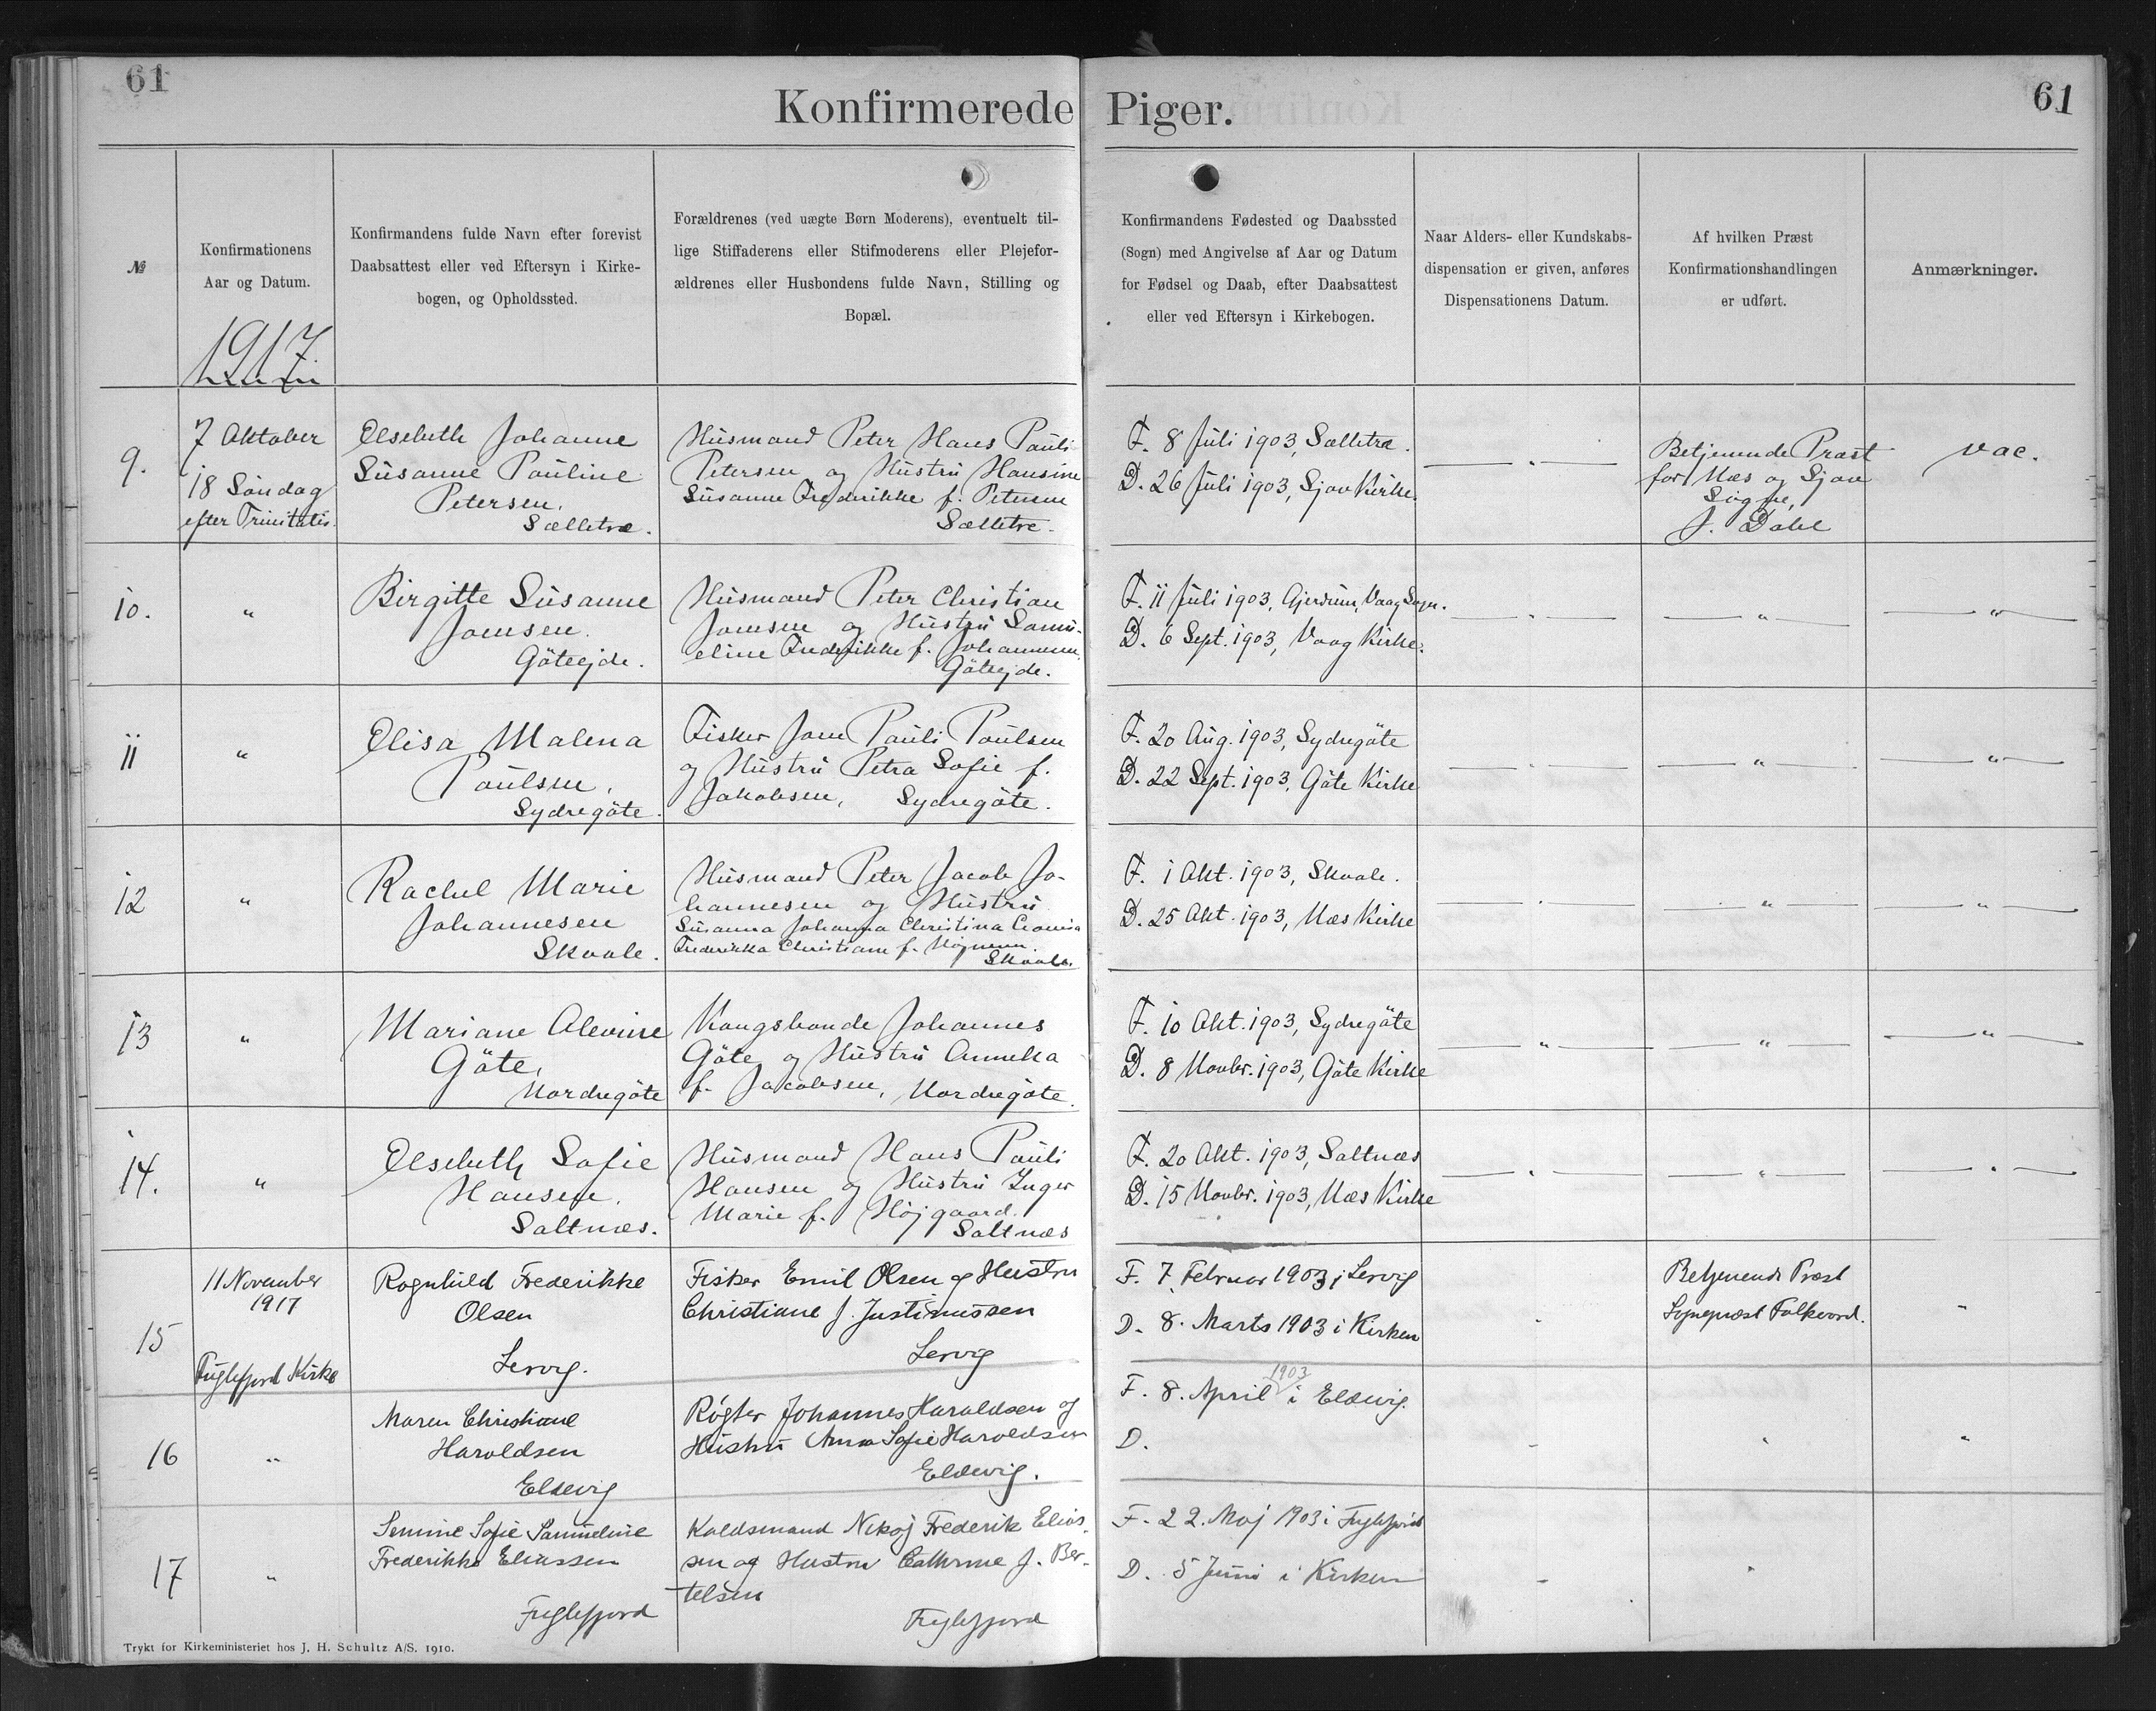 61
61
Konfirmerede Piger.
№
Konfirmationens
Aar og Datum.
Konfirmandens fulde Navn efter forevist
Daabsattest eller ved Eftersyn i Kirke-
bogen, og Opholdssted.
Forældrenes (ved uægte Børn Moderens), eventuelt til-
lige Stiffaderens eller Stifmoderens eller Plejefor-
ældrenes eller Husbondens fulde Navn, Stilling og
Bopæl.
Konfirmandens Fødested og Daabssted
(Sogn) med Angivelse af Aar og Datum
for Fødsel og Daab, efter Daabsattest
eller ved Eftersyn i Kirkebogen.
Naar Alders- eller Kundskabs-
dispensation er given, anføres
Dispensationens Datum.
Af hvilken Præst
Konfirmationshandlingen
er udført.
Anmærkninger.
1917
9.
7 Oktober
18 Søndag
efter Trinitatis.
Elsebeth Johanne
Susanne Pauline
Petersen,
Sælletræ.
Husmand Peter Hans Pauli
Petersen og Hustru Hansine
Susanne Frederikke f. Petersen
Sælletræ.
F. 8 Juli 1903, Sælletræ.
D. 26 Juli 1903, Sjov Kirke.
— " —
Betjenende Præst
for Næs og Sjov
Sogne,
J. Dahl
vac.
10.
"
Birgitte Susanne
Joensen.
Göteejde.
Husmand Peter Christian
Joensen og Hustru Samu-
eline Frederikke f. Johannesen.
Göteejde.
F. 11 Juli 1903, Gjerdum, Vaag Sogn.
D. 6 Sept. 1903, Vaag Kirke.
— " —
— " —
— " —
11
"
Elisa Malena
Poulsen,
Sydregöte.
Fisker Joen Pauli Poulsen
og Hustru Petra Sofie f.
Jakobsen, Sydregöte.
F. 20 Aug. 1903, Sydregöte
D. 22 Sept. 1903, Göte Kirke
— " —
— " —
— " —
12
"
Rachel Marie
Johannesen
Skaale.
Husmand Peter Jacob Jo-
hannesen og Hustru
Susanna Johanna Christina
Frederikka Christiane f.
Skaale.
F. 1 Okt. 1903, Skaale.
D. 25 Okt. 1903, Næs Kirke
— " —
— " —
— " —
13
"
Mariane Alevine
Göte,
Nordregöte
Kongsbonde Johannes
Göte og Hustru Annika
f. Jacobsen, Nordregöte.
F. 10 Okt. 1903, Sydregöte
D. 8 Novbr. 1903, Göte Kirke
— " —
— " —
— " —
14.
"
Elsebeth Sofie
Hansen.
Saltnæs.
Husmand Hans Pauli
Hansen og Hustru Inger
Marie f. Højgaard.
Saltnæs
F. 20 Okt. 1903, Saltnæs
D. 15 Novbr. 1903, Næs Kirke
— " —
— " —
— " —
15
11 November
1917
Fuglefjord Kirke
Ragnhild Frederikke
Olsen
Lervig.
Fisker Emil Olsen og Hustru
Christiane f. Justinussen
Lervig
F. 7. Februar 1903 i Lervig
D. 8. Marts 1903 i Kirken
Betjenende Præst
Sognepræst Falkvord.
"
16
"
Maren Christiane
Haroldsen
Eldevig
Røgter Johannes Haraldsen og
Hustru Anna Sofie Haroldsen
Eldevig.
1903
F. 8. April i Eldevig.
D.
"
"
17
"
Semine Sofie Samueline
Frederikke Eliassen
Fuglefjord
Koldsmand Nikoj Frederik Elias-
sen og Hustru Cathrine f. Ber-
telsen
Fuglefjord
F. 22. Maj 1903 i Fuglefjord
D. 5 Juni i Kirken
"
Trykt for Kirkeministeriet hos J. H. Schultz A/S. 1910.